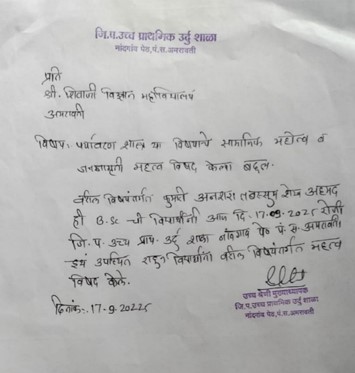 जि.प.उच्च प्राथमिक उर्दु शाळा
नांदगांव पेठ, पं.स.अमरावती
प्रति
श्री. शिवाजी विज्ञान महाविद्यालय
अमरावती
विषय: पर्यावरण शास्त्र या विषयाचे सामाजिक महत्व व
जनजागृती महत्व विषद केला बद्दल.
वरील विषयांतर्गत कुमारी अनशरा तबस्सुम शेख अहमद
ही B.Sc ची विद्यार्थीनी आज दि. 17.09.2025 रोजी
जि.प. उच्च प्राथ. उर्दु शाळा नांदगाव पेठ पं.स. अमरावती
इथं उपस्थित राहुन विद्यार्थ्यांना वरील विषयांतर्गत महत्व
विषद केले.
दिनांक:.17-9.2025
उच्च श्रेणी मुख्याध्यापक
जि.प.उच्च प्राथमिक उर्दु शाळा
नांदगांव पेठ, पं.स.अमरावती